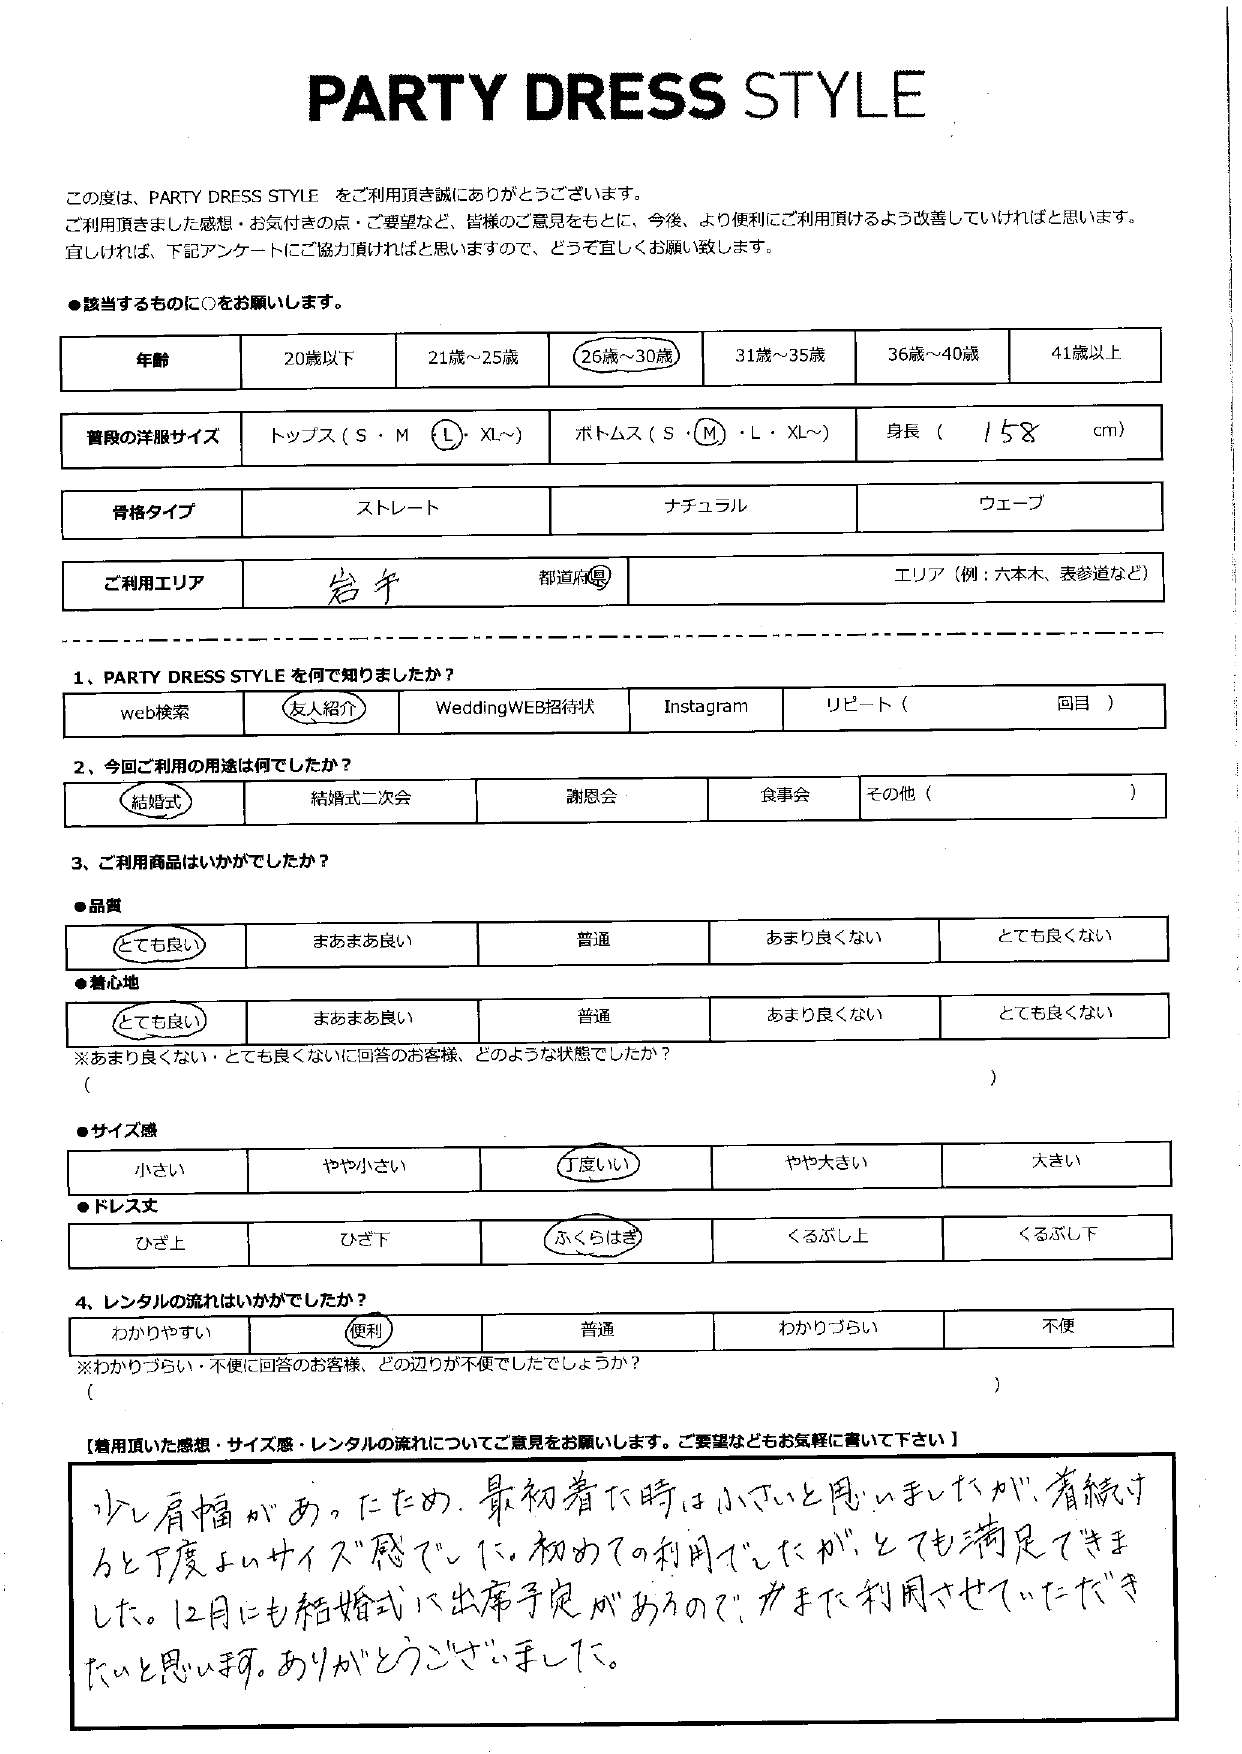 PARTY DRESS STYLE
この度は、PARTY DRESS STYLE をご利用頂き誠にありがとうございます。
ご利用頂きました感想・お気付きの点・ご要望など、皆様のご意見をもとに、今後、より便利にご利用頂けるよう改善していければと思います。
宜しければ、下記アンケートにご協力頂ければと思いますので、どうぞ宜しくお願い致します。
●該当するものに○をお願いします。
年齢 20歳以下 21歳～25歳 26歳～30歳 31歳～35歳 36歳～40歳 41歳以上
普段の洋服サイズ トップス ( S ・ M L ・ XL～) ボトムス ( S ・ M ・ L ・ XL～) 身長 ( 158 cm)
骨格タイプ ストレート ナチュラル ウェーブ
ご利用エリア 岩手 都道府県 エリア（例：六本木、表参道など）
1、PARTY DRESS STYLE を何で知りましたか？
web検索 友人紹介 WeddingWEB招待状 Instagram リピート（ 回目 ）
2、今回ご利用の用途は何でしたか？
結婚式 結婚式二次会 謝恩会 食事会 その他（ ）
3、ご利用商品はいかがでしたか？
●品質
とても良い まあまあ良い 普通 あまり良くない とても良くない
●着心地
とても良い まあまあ良い 普通 あまり良くない とても良くない
※あまり良くない・とても良くないに回答のお客様、どのような状態でしたか？
（ ）
●サイズ感
小さい やや小さい 丁度いい やや大きい 大きい
●ドレス丈
ひざ上 ひざ下 ふくらはぎ くるぶし上 くるぶし下
4、レンタルの流れはいかがでしたか？
わかりやすい 便利 普通 わかりづらい 不便
※わかりづらい・不便に回答のお客様、どの辺りが不便でしたでしょうか？
（ ）
【着用頂いた感想・サイズ感・レンタルの流れについてご意見をお願いします。ご要望などもお気軽に書いて下さい】
少し肩幅があったため、最初着た時は小さいと思いましたが、着続け
ると丁度よいサイズ感でした。初めての利用でしたが、とても満足できま
した。12月にも結婚式に出席予定があるので、また利用させていただき
たいと思います。ありがとうございました。